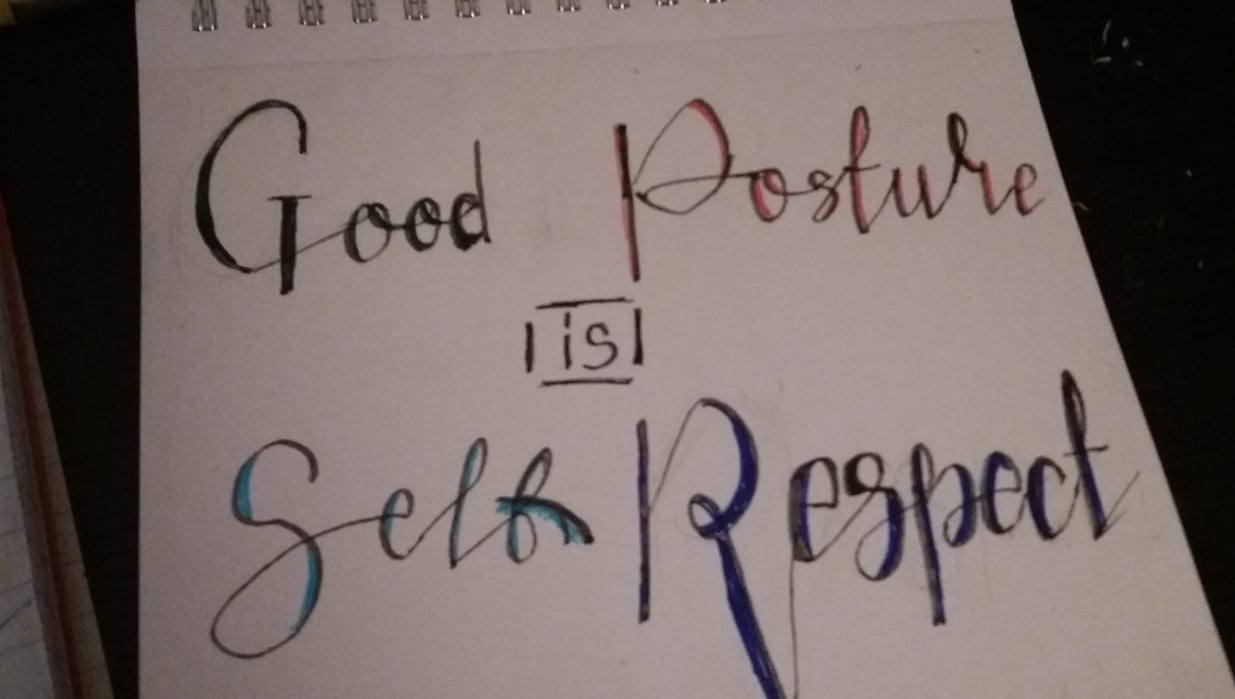 Good Posture
is
Self Respect